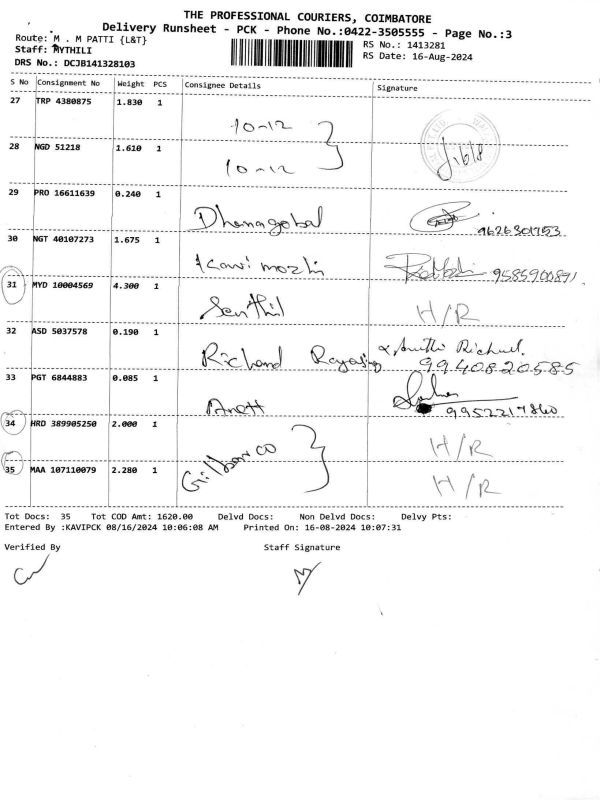 THE PROFESSIONAL COURIERS, COIMBATORE
Delivery Runsheet - PCK - Phone No.:0422-3505555 - Page No.:3
Route: M . M PATTI {L&T}
RS No.: 1413281
Staff: MYTHILI
RS Date: 16-Aug-2024
DRS No.: DCJB141328103
S No Consignment No Weight PCS Consignee Details Signature
27 TRP 4380875 1.830 1
10-12
28 NGD 51218 1.610 1
10-12
29 PRO 16611639 0.240 1
Dhanagobal 9626301753
30 NGT 40107273 1.675 1
Kawi mozhi 9585900891
31 MYD 10004569 4.300 1
Senthil H/R
32 ASD 5037578 0.190 1
Richard
9940820585
33 PGT 6844883 0.085 1
9952217860
34 HRD 389905250 2.000 1
H/R
35 MAA 107110079 2.280 1
H/R
Tot Docs: 35 Tot COD Amt: 1620.00 Delvd Docs: Non Delvd Docs: Delvy Pts:
Entered By :KAVIPCK 08/16/2024 10:06:08 AM Printed On: 16-08-2024 10:07:31
Verified By Staff Signature